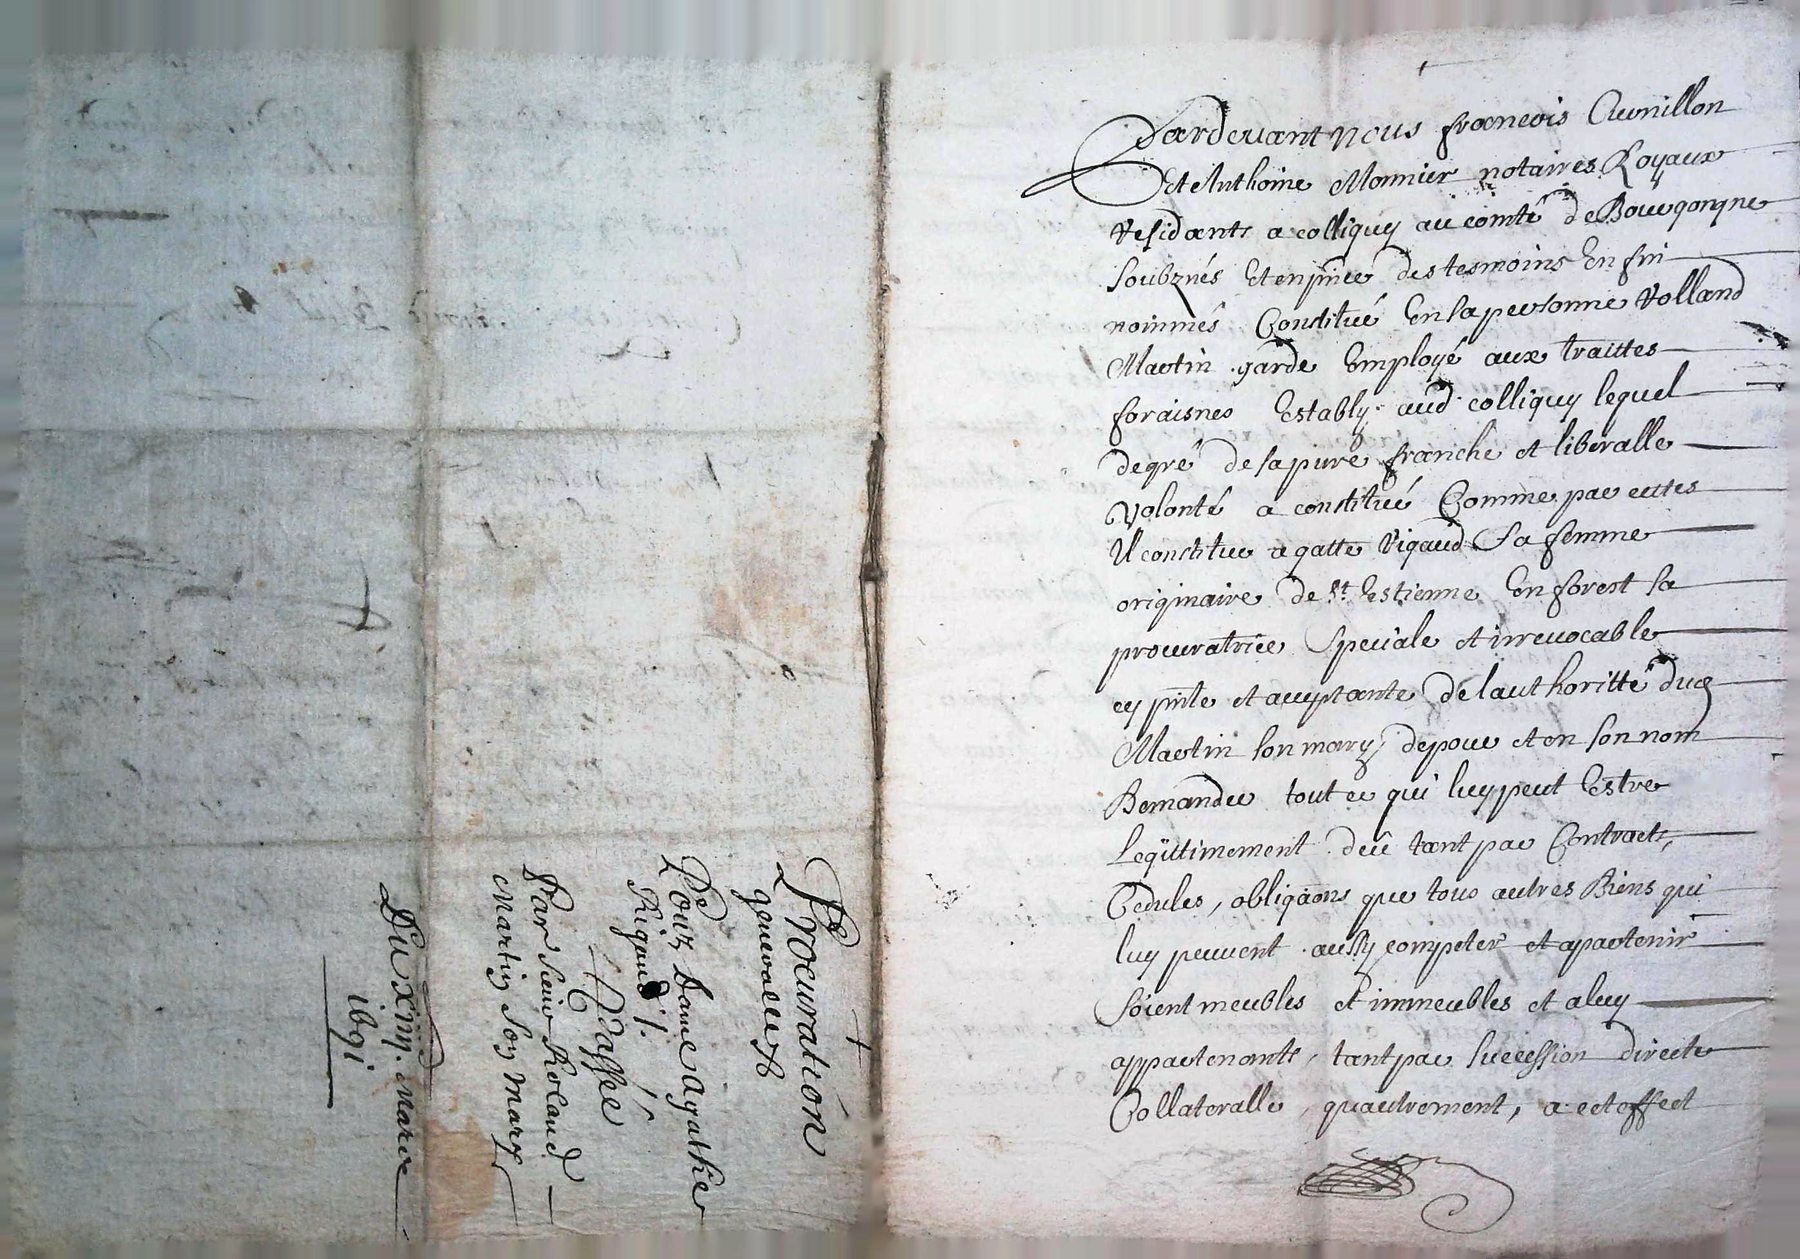 Procuration
generalle
Pour dame agathe
Rigaud /.
Passée
Par sieur Roland
Martin son mary
Du xiiij. Mars
1691
Pardevant nous francois Cuvnillon
Et Anthoine Monnier notaires Royaux
residants a colliguy au comté de Bourgongne
soubznés et en pñce des tesmoins en fin
nommés Constitué en sa personne Rolland
Martin garde Employé aux traittes
foraisnes Estably aud colliguy lequel
de gré de sa pure franche et liberalle
volonté a constitué Comme par cettes
Il constitue agatte Rigaud sa femme
originaire de St Estienne En forest sa
procuratrice speciale et irrevocable
cy pñte et acceptante de l'authoritté dud
Martin son mary, de pour et en son nom
Demander tout ce qui luy peut Estre
Legittimement deü tant par Contracts,
Cedules, obligãons que tous autres Biens qui
luy peuvent aussy competer et apartenir
soient meubles et immeubles et a luy
appartenants, tant par succession directe
Collateralle, qu'autrement, a cet effect